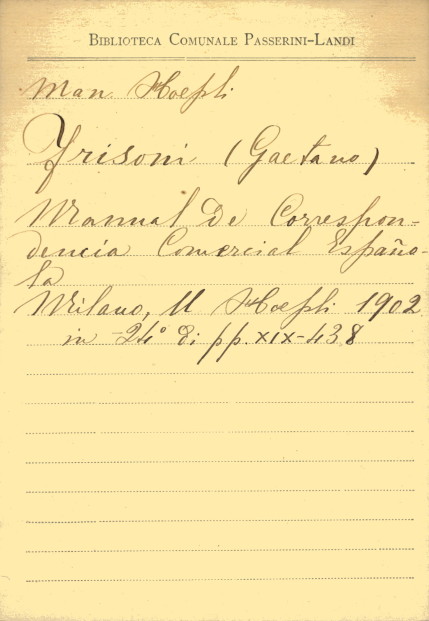 Biblioteca Comunale Passerini-Landi
Man. Hoepli
Frisoni (Gaetano)
Manual de Correspon-
dencia Comercial Españo-
la
Milano, U Hoepli 1902
in -24° di pp. XIX-438